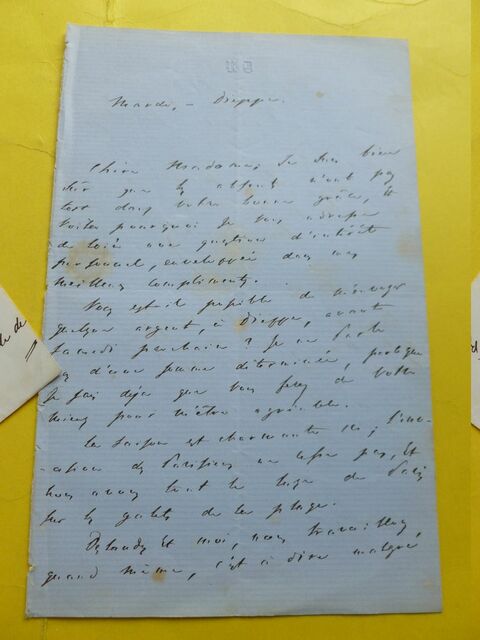 Mardi, – Dieppe.
Chère Madame, Je suis bien
sûr que les absents n'ont pas
tort dans votre bonne grâce, et
voilà pourquoi je vous adresse
de loin une question d'intérêt
personnel, enveloppée dans mes
meilleurs compliments.
Vous est-il possible de m'envoyer
quelque argent, à Dieppe, avant
samedi prochain ? Je ne parle
pas d'une somme déterminée, puisque
je sais déjà que vous ferez de votre
mieux pour m'être agréable.
La saison est charmante ici ; l'inva-
-sion des Parisiens ne cesse pas, et
nous avons tout le luxe de Paris
sur les galets de la plage.
et moi, nous travaillons
quand même, c'est à dire malgré
de